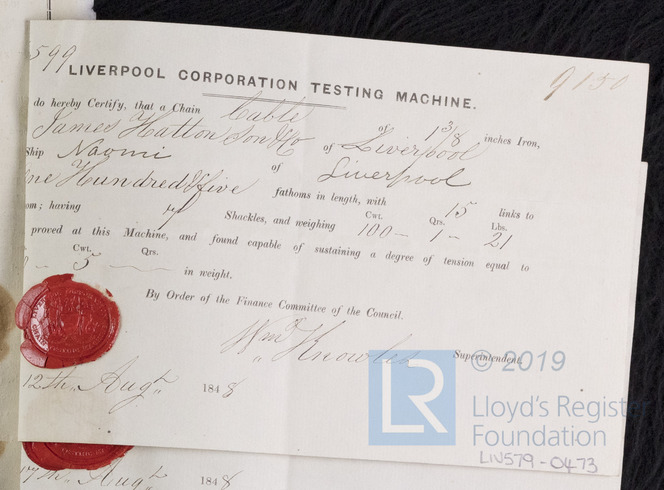 599
9130
LIVERPOOL CORPORATION TESTING MACHINE.
do hereby Certify, that a Chain Cable of 1 3/8 inches Iron,
James Hatton Son & Co of Liverpool
Ship Naomi of Liverpool
ne Hundred & five fathoms in length, with 15 links to
om; having 4 Shackles, and weighing 100 - Cwt. 1 - Qrs. 21 Lbs.
proved at this Machine, and found capable of sustaining a degree of tension equal to
Cwt. 5 Qrs. in weight.
By Order of the Finance Committee of the Council.
Wm Knowles Superintendent.
12th Augt 1848
17th Augt 1848
LR © 2019
Lloyd's Registe
Foundation
LIV579-0473